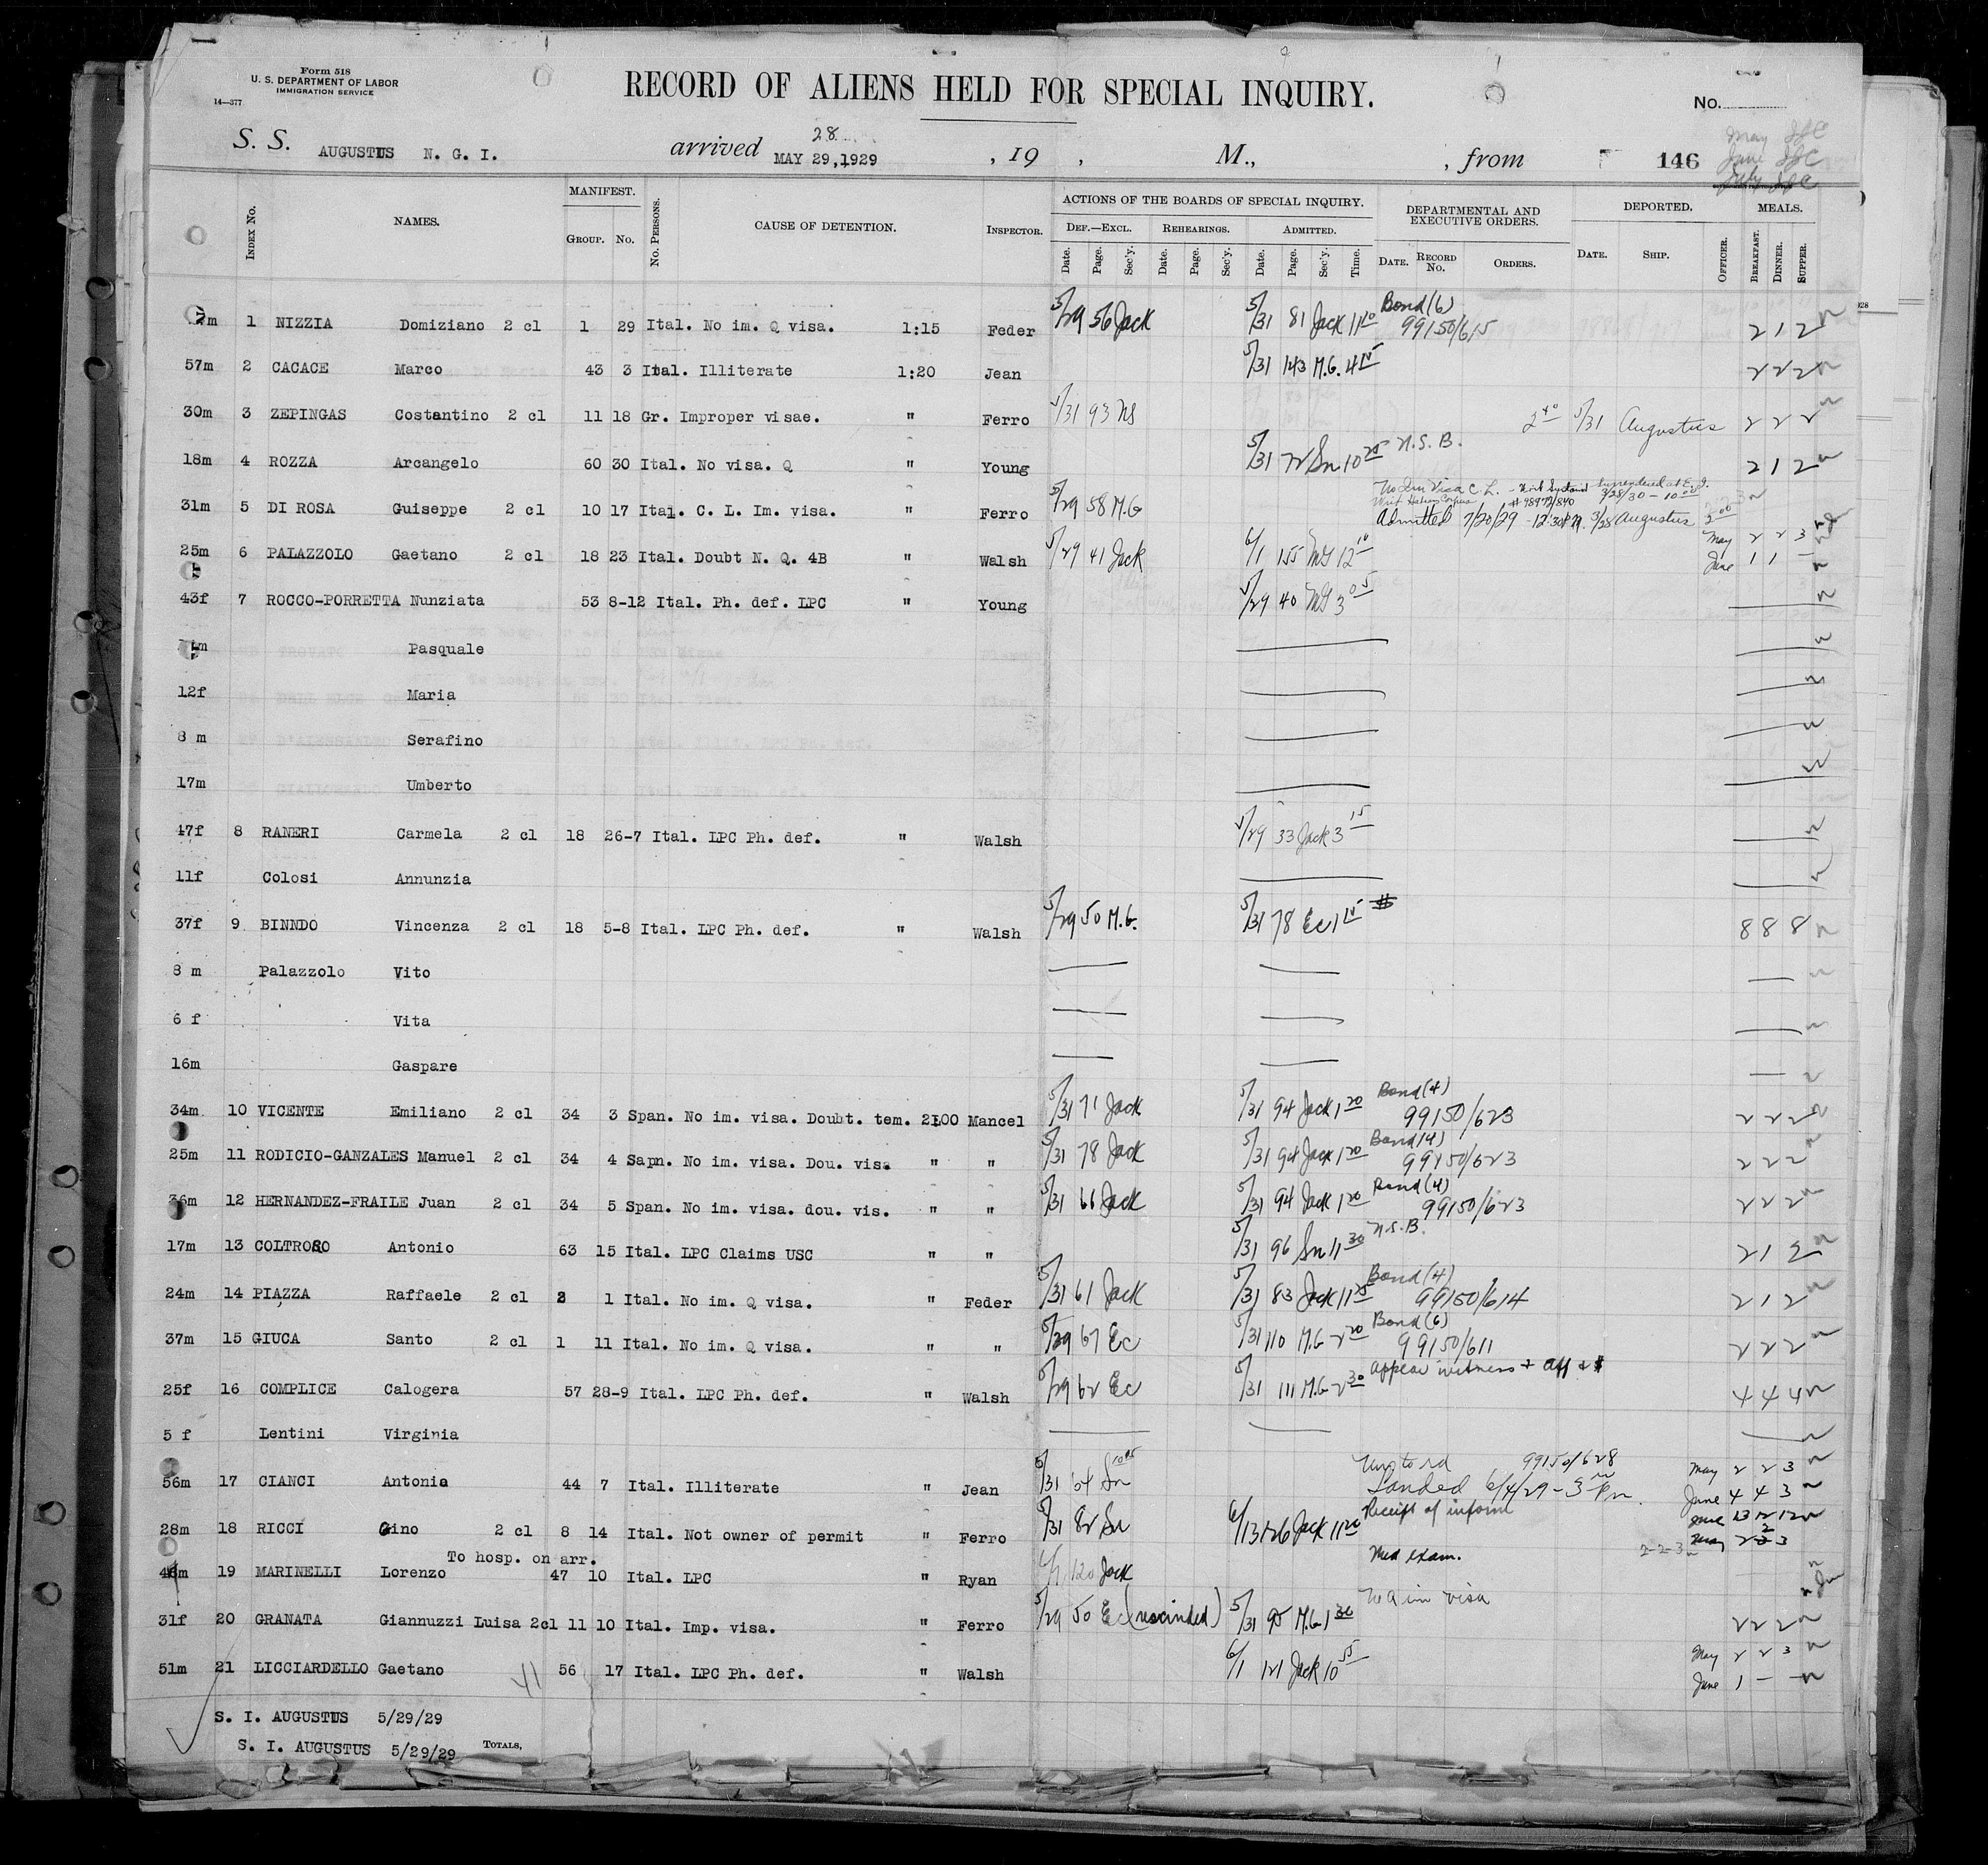 Form 518
U. S. DEPARTMENT OF LABOR
IMMIGRATION SERVICE
14—377
RECORD OF ALIENS HELD FOR SPECIAL INQUIRY.
No.
May
June
July
S. S. AUGUSTUS N. G. I. arrived 28 MAY 29,1929 , 19 , M., , from 146
Index No. NAMES. MANIFEST. Group. No. No. Persons. CAUSE OF DETENTION. Inspector. ACTIONS OF THE BOARDS OF SPECIAL INQUIRY. Def.—Excl. Date. Page. Sec'y. Rehearings. Date. Page. Sec'y. Admitted. Date. Page. Sec'y. Time. DEPARTMENTAL AND EXECUTIVE ORDERS. Date. Record No. Orders. DEPORTED. Date. Ship. Officer. MEALS. Breakfast. Dinner. Supper.
m 1 NIZZIA Domiziano 2 cl 1 29 Ital. No im. Q visa. 1:15 Feder 5/29 56 Jack 5/31 81 Jack 11 10 Bond (6) 99150/615 2 1 2
57m 2 CACACE Marco 43 3 Ital. Illiterate 1:20 Jean 5/31 143 M.G. 4 15 2 2 2
30m 3 ZEPINGAS Costantino 2 cl 11 18 Gr. Improper visae. " Ferro 5/31 93 2 40 5/31 Augustus 2 2 2
18m 4 ROZZA Arcangelo 60 30 Ital. No visa. Q " Young 5/31 72 Sn 10 25 N.S.B. 2 1 2
31m 5 DI ROSA Guiseppe 2 cl 10 17 Ital. C. L. Im. visa. " Ferro 5/29 58 M.G No Im Visa C. L. Surrendered at E. I. Writ Habeas Corpus # 98972/840 3/28/30 - 10 Admitted 7/20/29 - 12:30 3/28 Augustus 2 00
25m 6 PALAZZOLO Gaetano 2 cl 18 23 Ital. Doubt N. Q. 4B " Walsh 5/29 41 Jack 6/1 155 MG 12 10 May 2 2 3 June 1 1 —
43f 7 ROCCO-PORRETTA Nunziata 53 8-12 Ital. Ph. def. LPC " Young 5/29 40 MG 3 05
m Pasquale
12f Maria
8 m Serafino
17m Umberto
47f 8 RANERI Carmela 2 cl 18 26-7 Ital. LPC Ph. def. " Walsh 5/29 33 Jack 3 15
11f Colosi Annunzia
37f 9 BINNDO Vincenza 2 cl 18 5-8 Ital. LPC Ph. def. " Walsh 5/29 50 M.G. 5/31 78 Ec 1 15 $ 8 8 8
8 m Palazzolo Vito
6 f Vita
16m Gaspare
34m 10 VICENTE Emiliano 2 cl 34 3 Span. No im. visa. Doubt. tem. 2:00 Mancel 5/31 71 Jack 5/31 94 Jack 1 20 Bond (4) 99150/623 2 2 2
25m 11 RODICIO-GANZALES Manuel 2 cl 34 4 Sapn. No im. visa. Dou. visa " " 5/31 78 Jack 5/31 94 Jack 1 20 Bond (4) 99150/623 2 2 2
36m 12 HERNANDEZ-FRAILE Juan 2 cl 34 5 Span. No im. visa. dou. vis. " " 5/31 66 Jack 5/31 94 Jack 1 20 Bond (4) 99150/623 2 2 2
17m 13 COLTROSO Antonio 63 15 Ital. LPC Claims USC " " 5/31 96 Sn 11 30 N.S.B. 2 1 2
24m 14 PIAZZA Raffaele 2 cl 2 1 Ital. No im. Q visa. " Feder 5/31 61 Jack 5/31 83 Jack 11 25 Bond (4) 99150/614 2 1 2
37m 15 GIUCA Santo 2 cl 1 11 Ital. No im. Q visa. " " 5/29 67 Ec 5/31 110 M.G 2 20 Bond (6) 99150/611 2 2 2
25f 16 COMPLICE Calogera 57 28-9 Ital. LPC Ph. def. " Walsh 5/29 62 Ec 5/31 111 M.G 2 30 appear witness + aff + $ 4 4 4
5 f Lentini Virginia
56m 17 CIANCI Antonia 44 7 Ital. Illiterate " Jean 5/31 Sn 99150/628 Landed 6/4/29 - 3 Pm. May 2 2 3 June 4 4 3
28m 18 RICCI Gino 2 cl 8 14 Ital. Not owner of permit " Ferro 5/31 82 Sn 6/13 126 Jack 11 20 Receipt of inform June 13 12 12 May 2 2 3
To hosp. on arr.
m 19 MARINELLI Lorenzo 47 10 Ital. LPC " Ryan 6/1 120 Jack Med exam. 2-2-3
31f 20 GRANATA Giannuzzi Luisa 2cl 11 10 Ital. Imp. visa. " Ferro 5/29 50 Ec (rescinded) 5/31 95 M.G 1 30 No im visa 2 2 2
51m 21 LICCIARDELLO Gaetano 41 56 17 Ital. LPC Ph. def. " Walsh 6/1 121 Jack 10 55 May 2 2 3 June 1 — —
S. I. AUGUSTUS 5/29/29
S. I. AUGUSTUS 5/29/29 Totals,